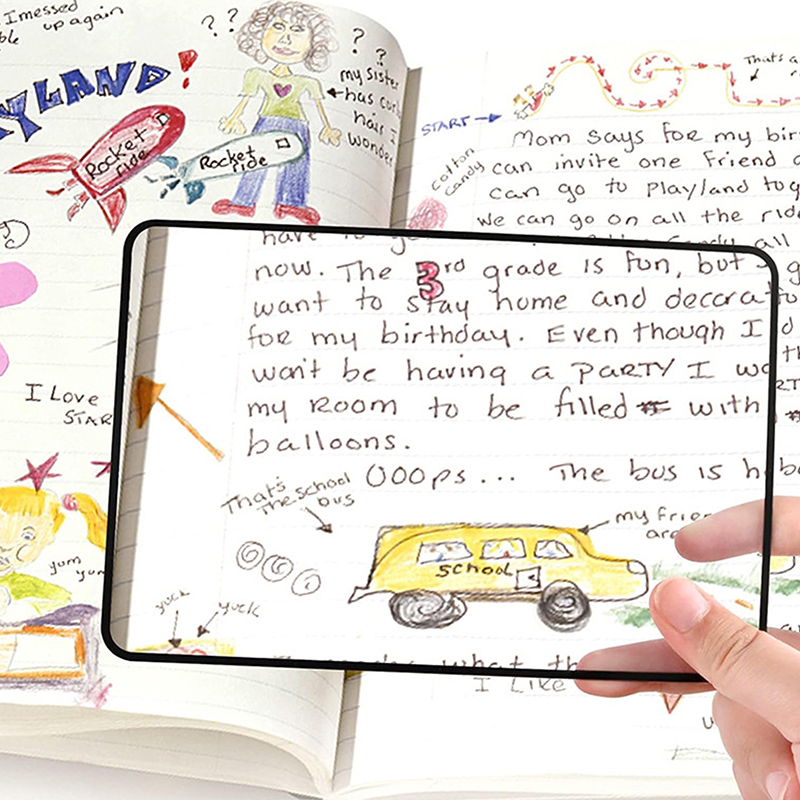 I messed
up again
YLAND!
Rocket ride
Rocket ride
? ?
? ?
my sister
has
hair I
wonder
I Love
STAR
yum
yum
START
cotton
candy
That's a
Mom says for my
can invite one Friend
can go to Playland
we can go on all the
all
now. The 3rd grade is fun, but
want to stay home and
for my birthday. Even though I
won't be having a PARTY I
my Room to be filled with
balloons.
OOOps... The bus is
That's
the school
bus
my
SCHOOL
yuck
yuck
what
I Like